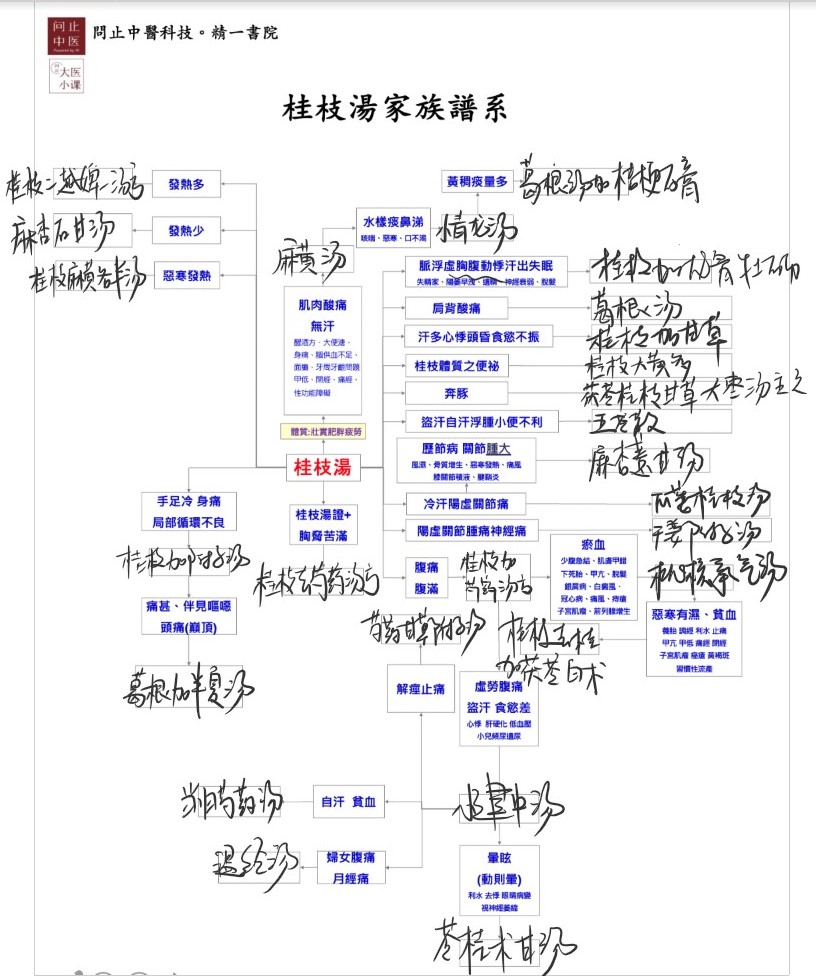 問止中医
問止中醫科技。精一書院
大医小课
桂枝湯家族譜系
黃稠痰量多
葛根汤加桔梗石膏
桂枝二越婢一汤
發熱多
水樣痰鼻涕
咳喘、惡寒、口不渴
麻杏石甘汤
發熱少
麻黄汤
桂枝麻黄各半汤
惡寒發熱
脈浮虛胸腹動悸汗出失眠
失精家、陽萎早洩、遺精、神經衰弱、脫髮
肌肉酸痛
無汗
肩背酸痛
葛根汤
醒酒方、大便溏、
身痛、腦供血不足、
面癱、牙周牙齦問題
甲低、閉經、痛經、
性功能障礙
汗多心悸頭昏食慾不振
桂枝加甘草
桂枝體質之便祕
奔豚
茯苓桂枝甘草大枣汤主之
盜汗自汗浮腫小便不利
五苓散
體質:壯實肥胖疲勞
歷節病 關節腫大
風濕、骨質增生、惡寒發熱、痛風
膝關節積液、腱鞘炎
麻杏薏甘汤
桂枝湯
手足冷 身痛
局部循環不良
桂枝湯證+
胸脅苦滿
冷汗陽虛關節痛
陽虛關節腫痛神經痛
桂枝加附子汤
腹痛
腹滿
桂枝加
芍药汤
瘀血
少腹急結、肌膚甲錯
下死胎、甲亢、脫髮
銀屑病、白癜風、
冠心病、痛風、痔瘡
子宮肌瘤、前列腺增生
桃核承气汤
痛甚、伴見嘔噁
頭痛(巔頂)
芍药甘草附子汤
桂枝去桂
加茯苓白术
惡寒有濕、貧血
養胎 調經 利水 止痛
甲亢 甲低 痛經 閉經
子宮肌瘤 痤瘡 黃褐斑
習慣性流產
葛根加半夏汤
解痙止痛
虛勞腹痛
盜汗 食慾差
心悸 肝硬化 低血壓
小兒頻尿遺尿
当归芍药汤
自汗 貧血
小建中汤
温经汤
婦女腹痛
月經痛
暈眩
(動則暈)
利水 去悸 眼睛病變
視神經萎縮
苓桂术甘汤